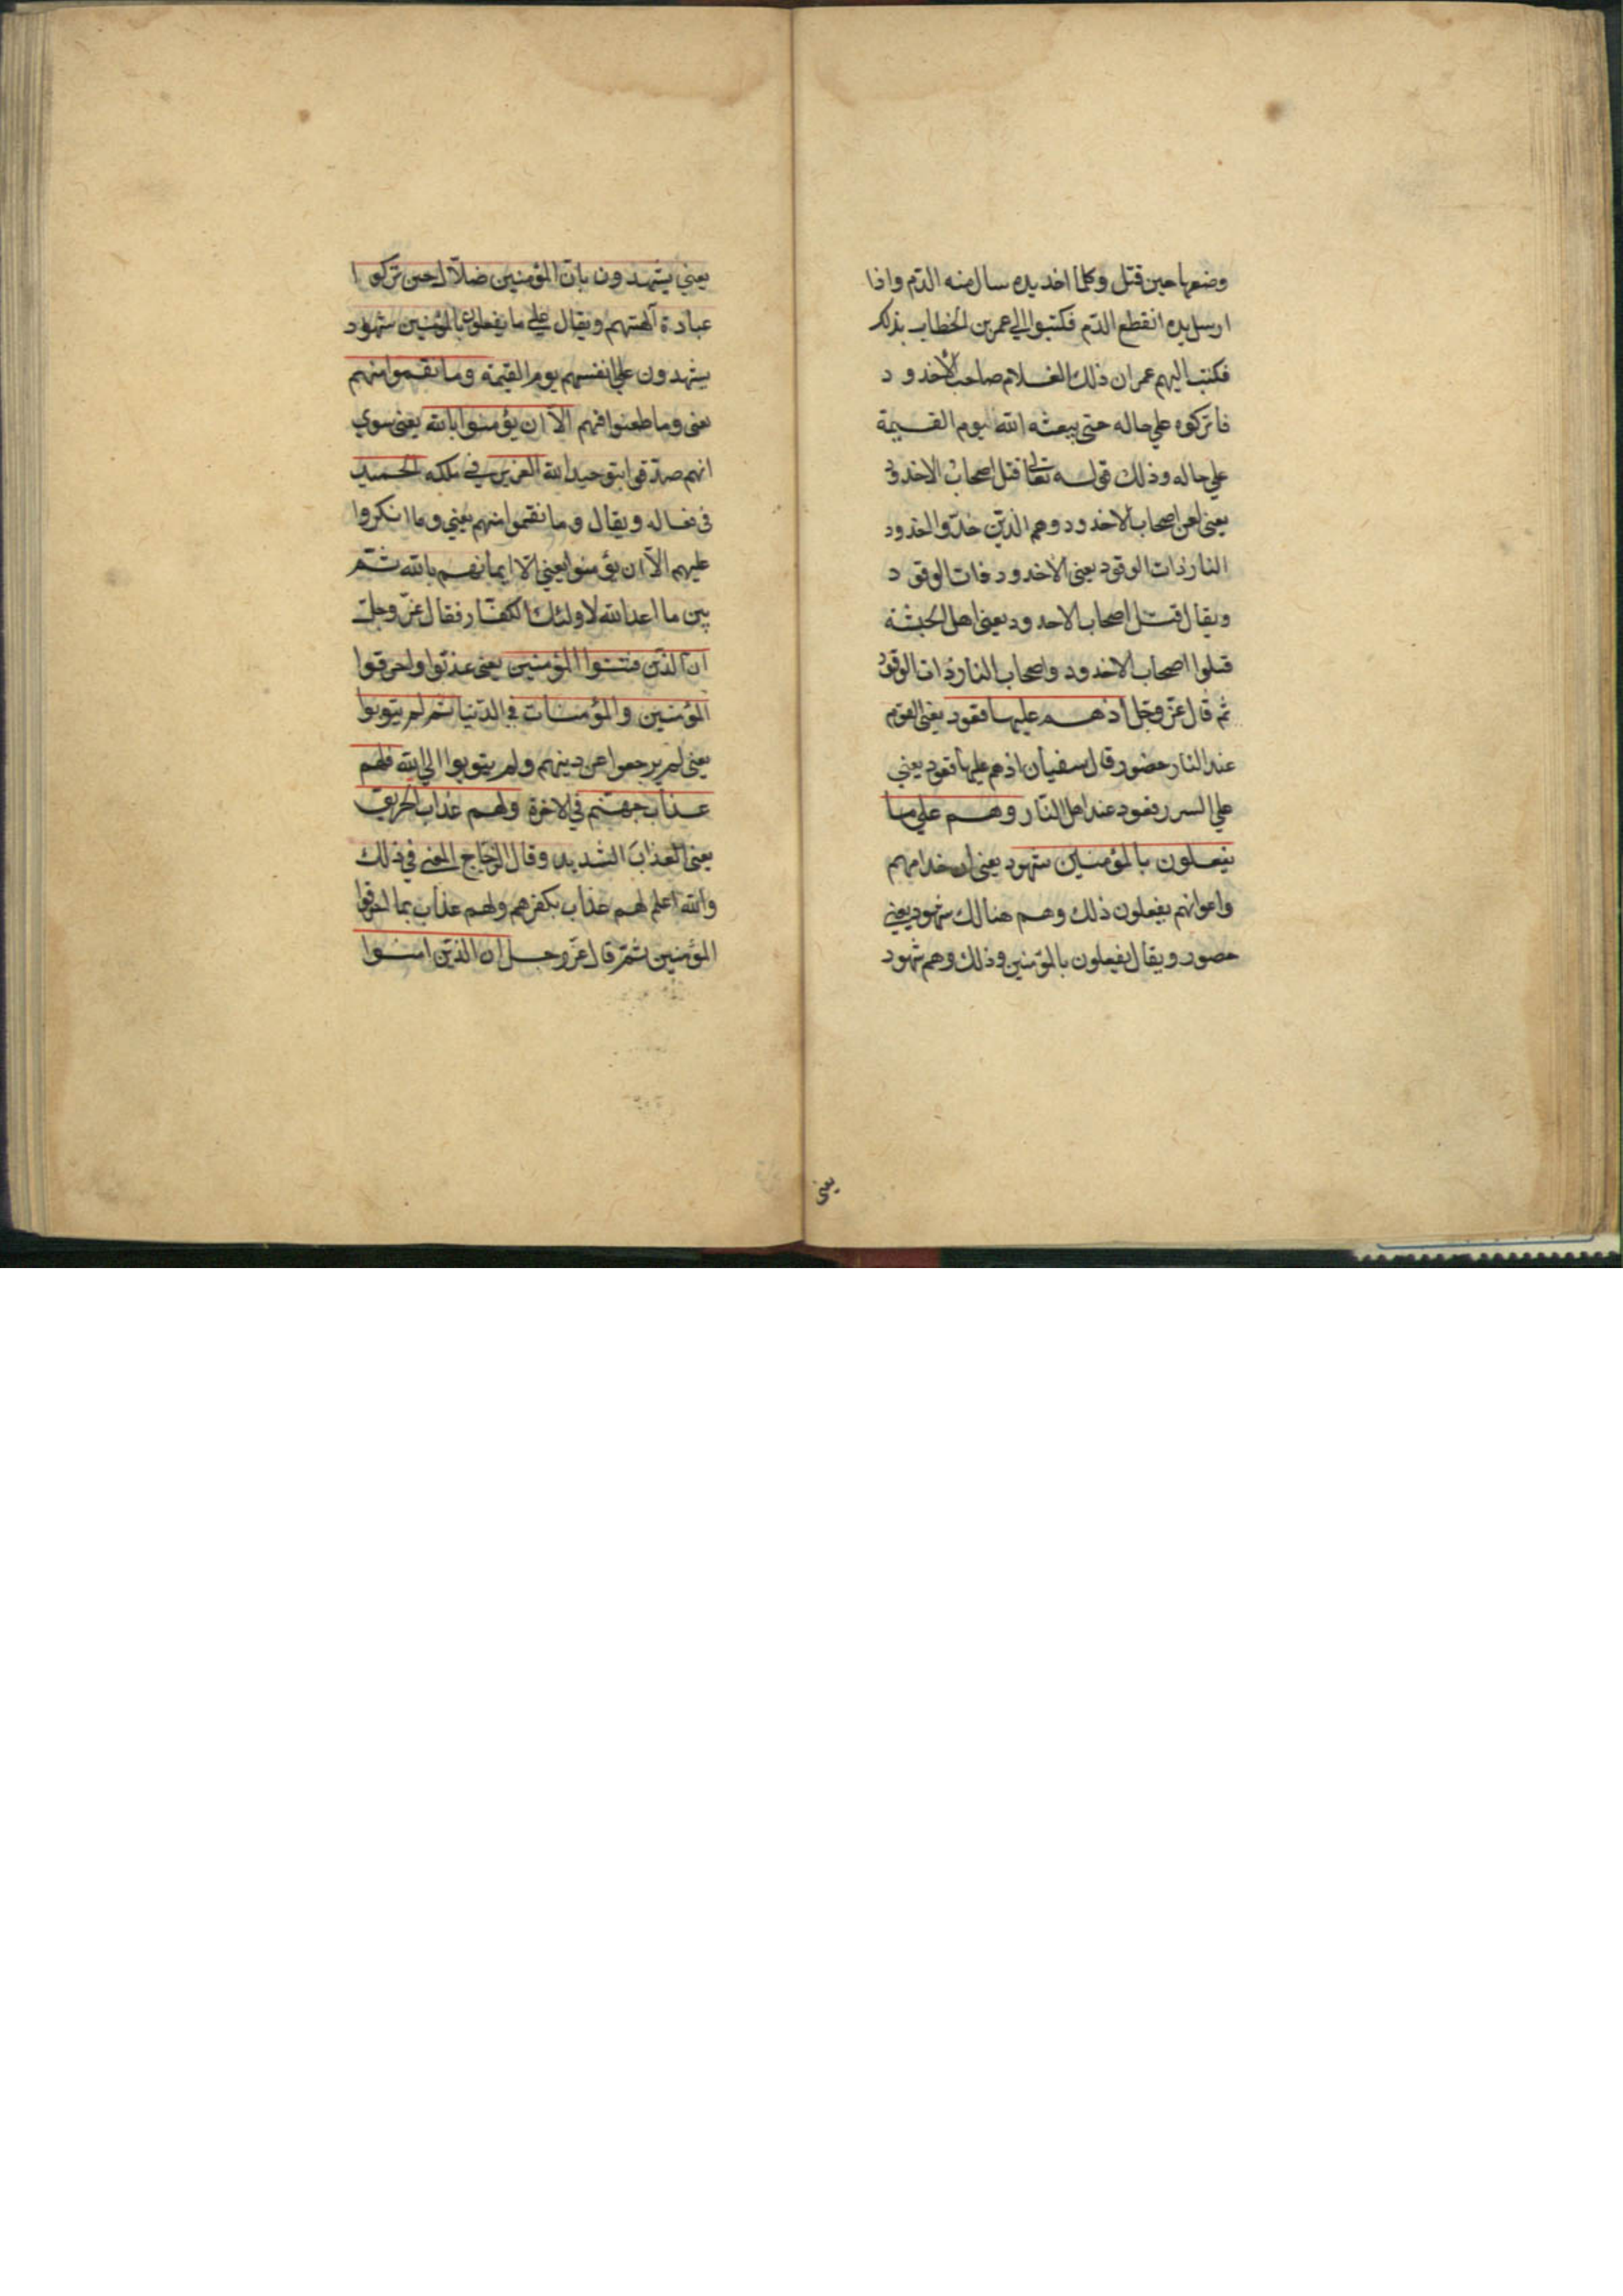 وضعها حين قتل وكلما اخذ يده سال منه الدّم واذا
ارسل يده انقطع الدّم فكتبوا الي عمر بن الخطاب بذلك
فكتب اليهم عمر ان ذلك الغلام صاحب الاخدود
فاتركوه علي حاله حتى يبعثه الله يوم القيمة
علي حاله وذلك قوله تعالى قتل اصحاب الاخدود
يعنى لعن اصحاب الاخدود وهم الذين خدّوا الخدود
النار ذات الوقود يعنى الاخدود ذات الوقود
ويقال قتل اصحاب الاخدود يعنى اهل الحبشة
قتلوا اصحاب الاخدود واصحاب النار ذات الوقود
ثم قال عزّ وجل اذ هم عليها قعود يعنى القوم
عند النار حضور قال سفيان اذ هم عليها قعود يعني
علي السرر قعود عند اهل النّار وهم علي ما
يفعلون بالمؤمنين شهود يعنى ان خدامهم
واعوانهم يفعلون ذلك وهم هنالك شهود يعني
حضور ويقال يفعلون بالمؤمنين وذلك وهم شهود
يعنى
يعني يشهدون بانّ المؤمنين ضلّال حين تركوا
عبادة آلهتهم ويقال علي ما يفعلون بالمؤمنين شهود
يشهدون علي انفسهم يوم القيمة وما نقموا منهم
يعنى وما طعنوا فيهم الّا ان يؤمنوا بالله يعنى سوي
انهم صدّقوا بتوحيد الله العزيز في ملكه الحميد
في فعاله ويقال وما نقموا منهم يعني وما انكروا
عليهم الّا ان يؤمنوا يعني الّا ايمانهم بالله ثمّ
بيّن ما اعد الله لاولئك الكفّار فقال عزّ وجلّ
ان الذين فتنوا المؤمنين يعنى عذبوا واحرقوا
المؤمنين والمؤمنات في الدّنيا ثم لم يتوبوا
يعنى لم يرجعوا عن دينهم ولم يتوبوا الي الله فلهم
عذاب جهنّم في الاخرة ولهم عذاب الحريق
يعنى العذاب الشديد وقال الزجاج المعنى في ذلك
والله اعلم لهم عذاب بكفرهم ولهم عذاب بما احرقوا
المؤمنين ثمّ قال عزّ وجل ان الذين امنوا